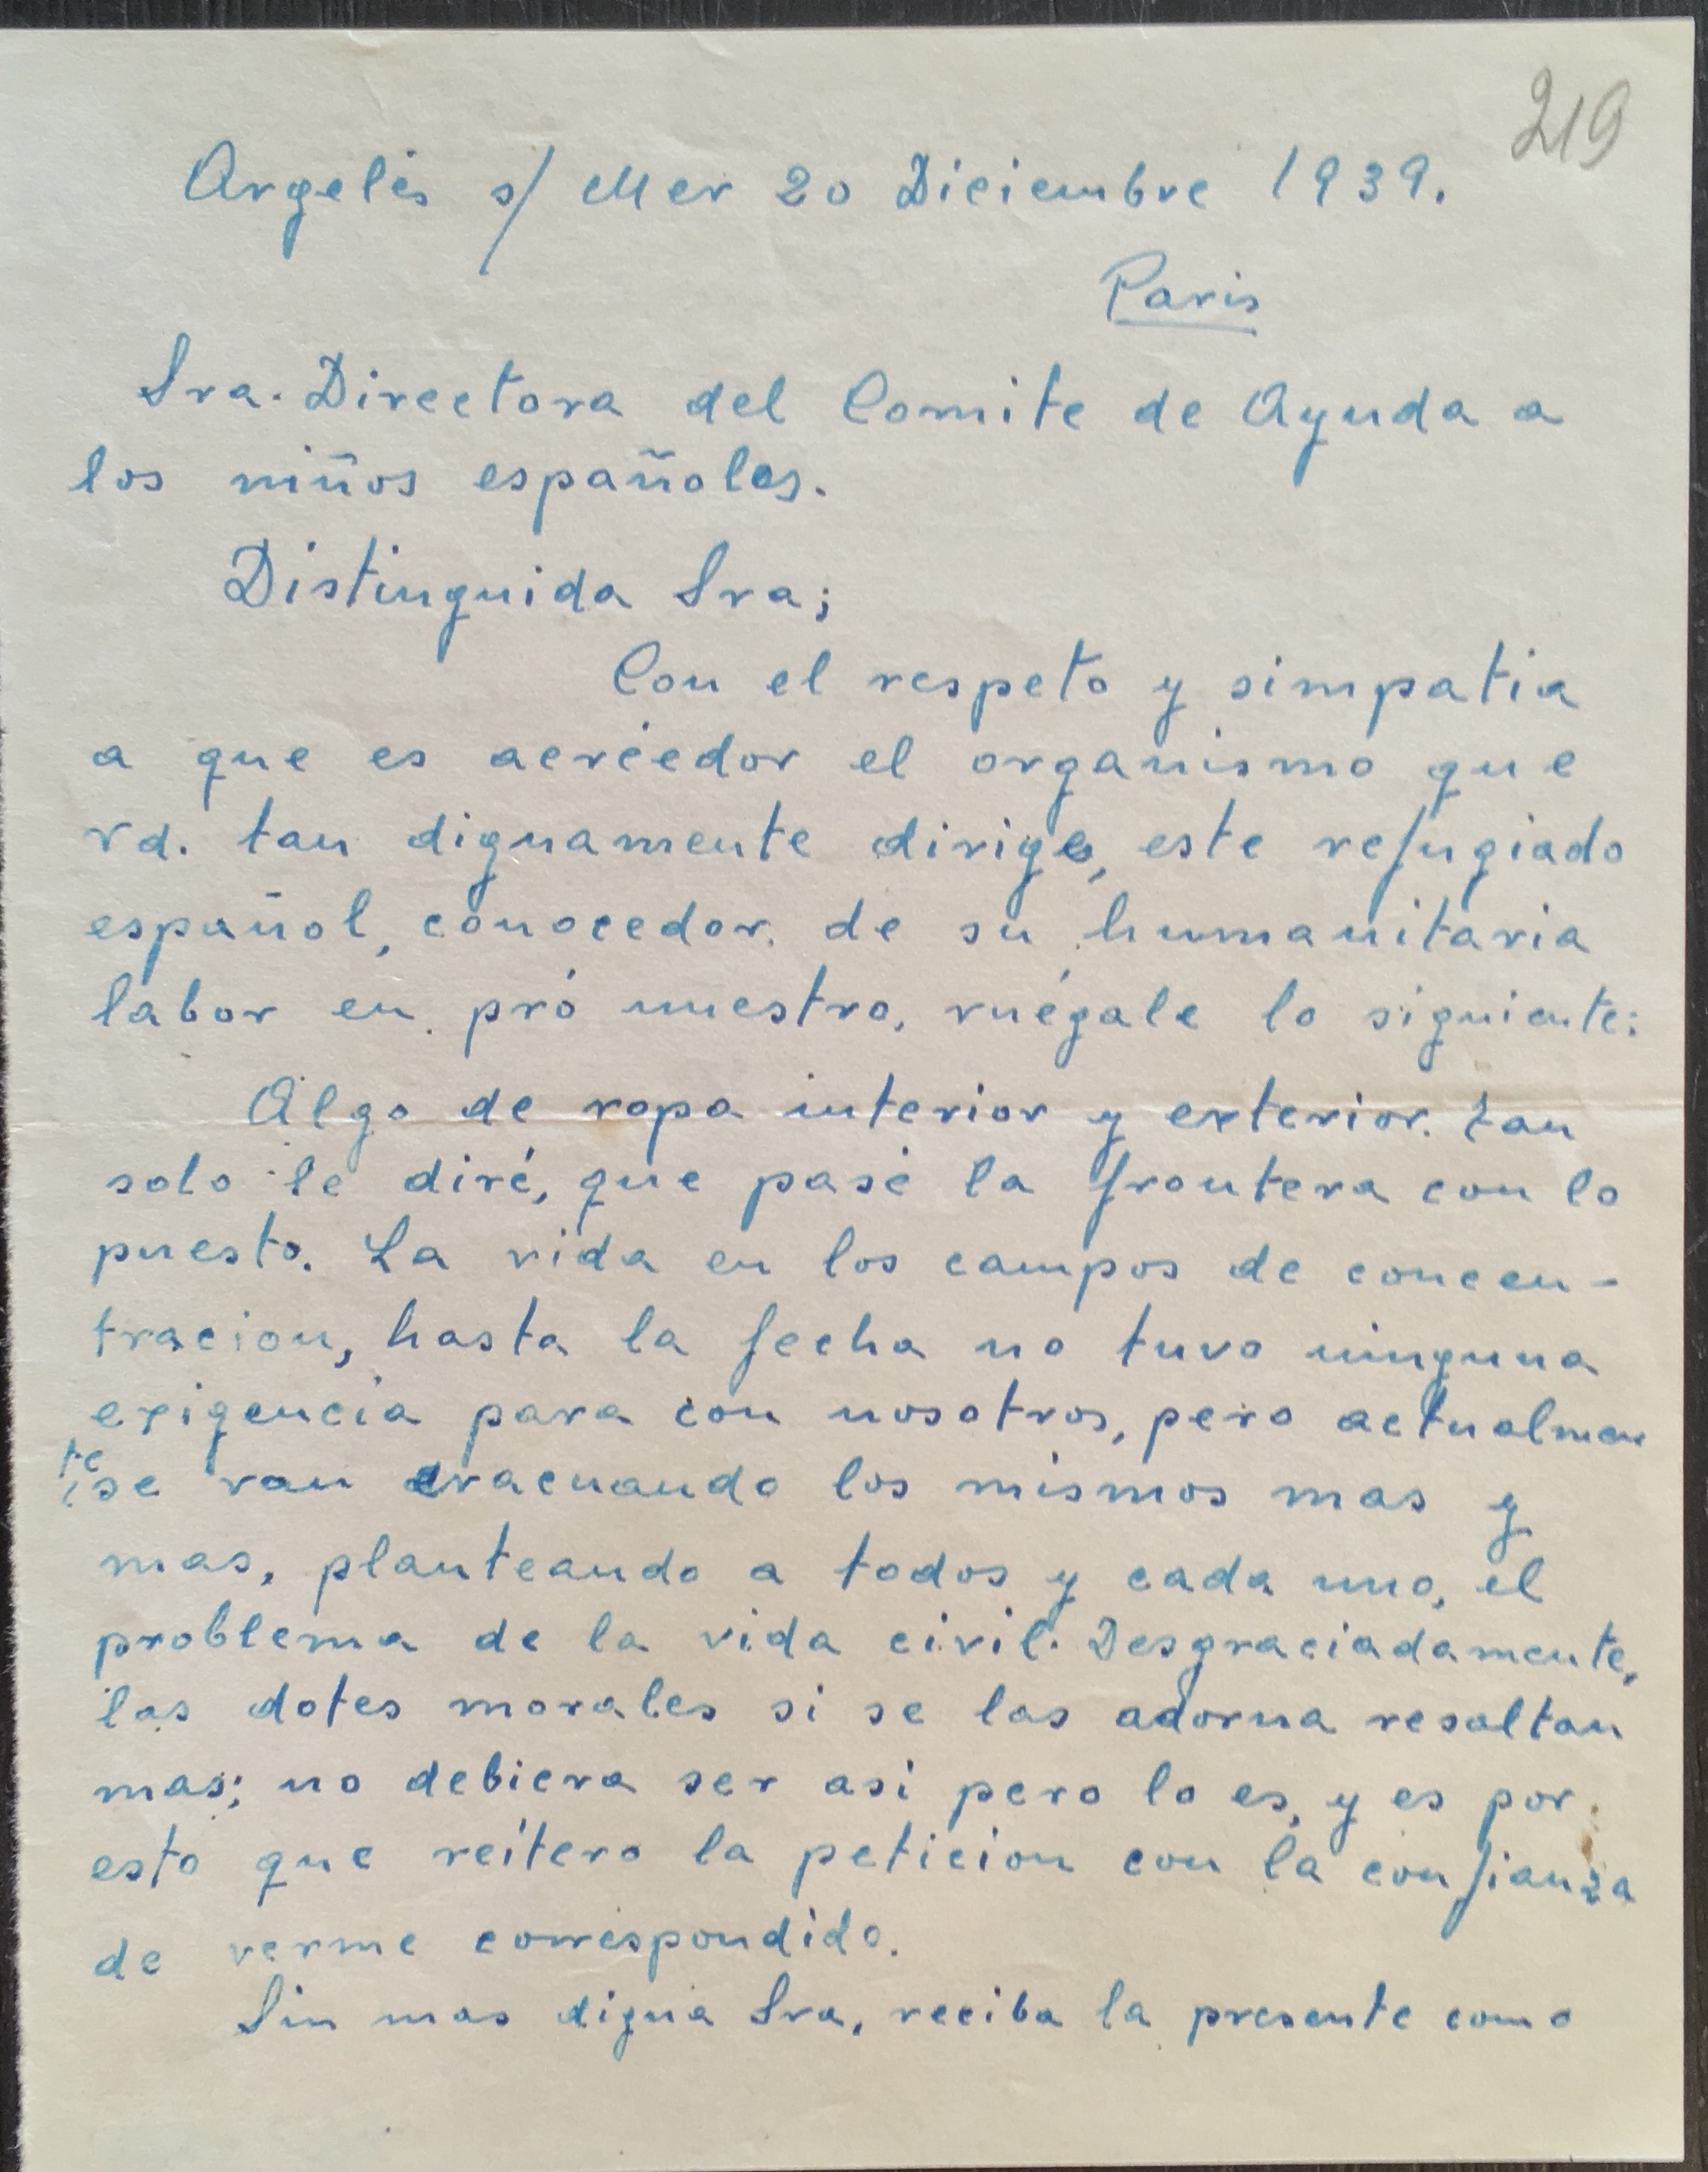 219
Argelés s/ Mer 20 Diciembre 1939.
Paris
Sra. Directora del Comite de Ayuda a
los niños españoles.
Distinguida Sra;
Con el respeto y simpatia
a que es acréedor el organismo que
vd. tan dignamente dirige, este refugiado
español, conocedor de su humanitaria
labor en pró nuestro, ruégale lo siguiente:
Algo de ropa interior y exterior. tan
solo le diré, que pasé la frontera con lo
puesto. La vida en los campos de concen-
tracion, hasta la fecha no tuvo ninguna
exigencia para con nosotros, pero actualmen
te se van evacuando los mismos mas y
mas, planteando a todos y cada uno, el
problema de la vida civil. Desgraciadamente,
las dotes morales si se las adorna resaltan
mas; no debiera ser asi pero lo es, y es por
esto que reitero la peticion con la confianza
de verme correspondido.
Sin mas digna Sra, reciba la presente como